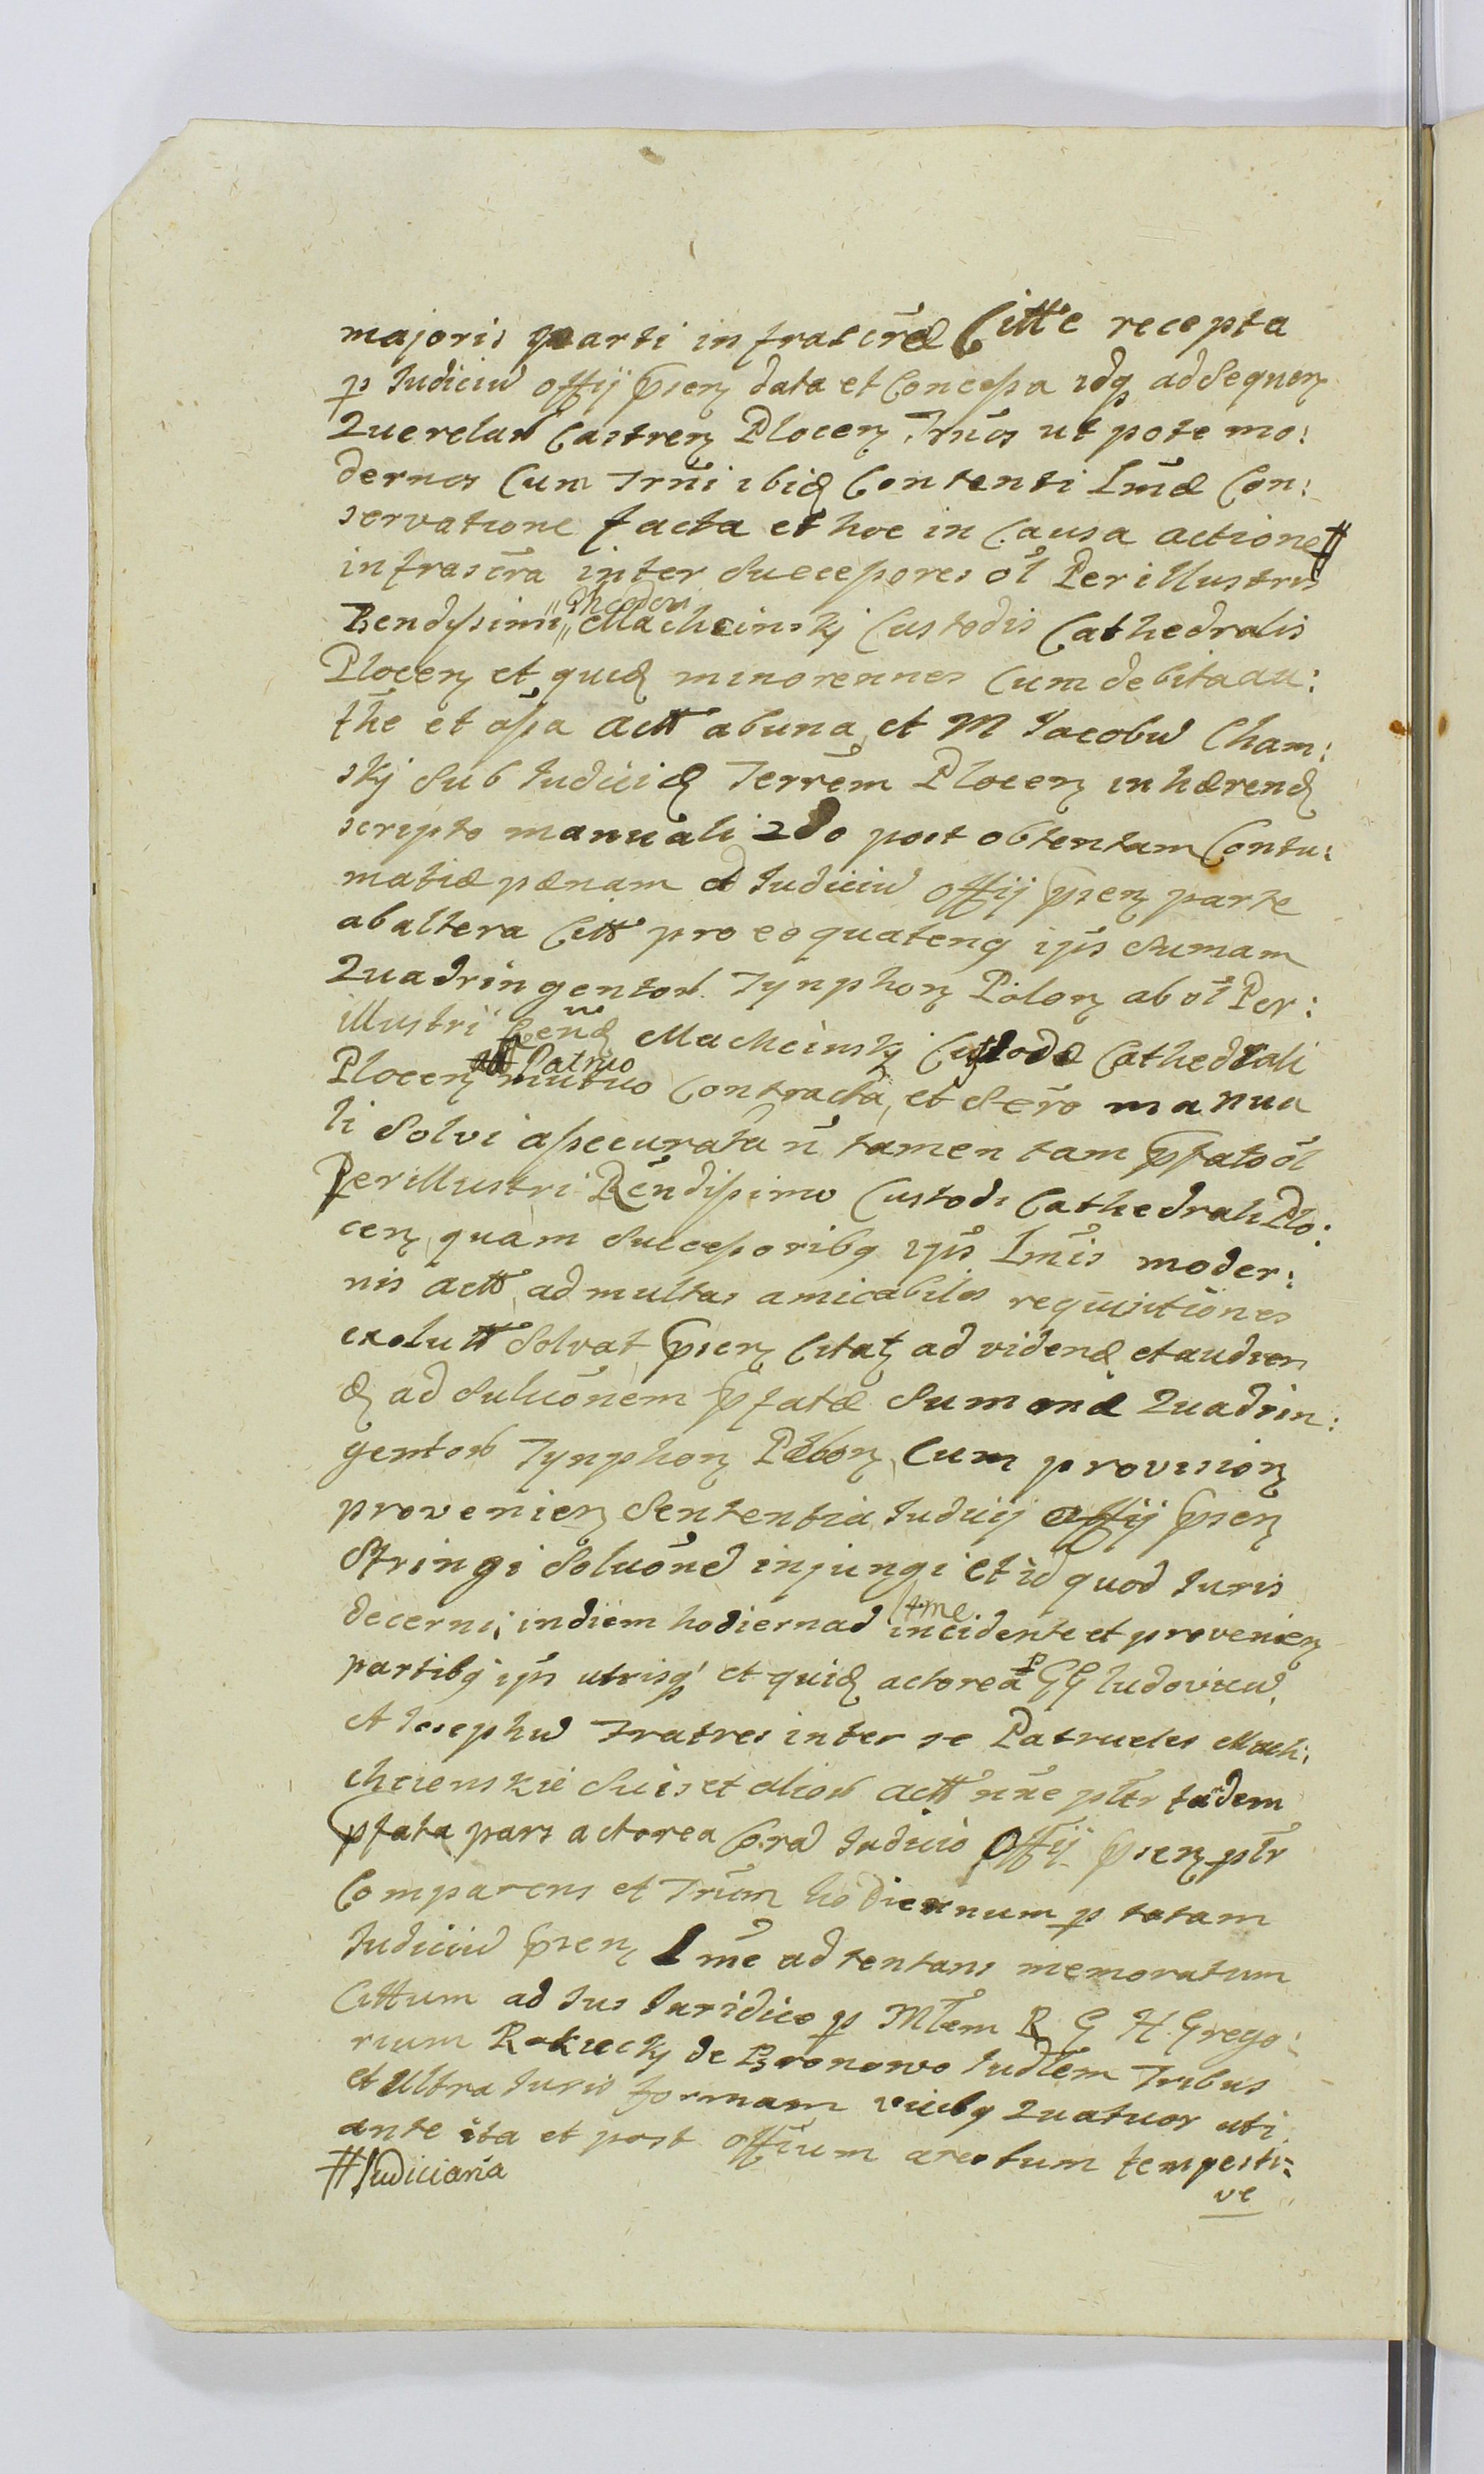 majoris parti infrascrae Citte recepta
p Iudiciu Offij psen data et Concessa idq ad Sequen
Querelaru Castren Plocen Trnos ut pote mo:
dernos Cum Trni ibid Contenti Lmae Con:
servatione facta et hoc in Causa actione #
infrascra inter Successores ol Perillustris
Rendissimi „Theodori„ Machcinskj Custodis Cathedralis
Plocen et quid minorennes Cum debita au:
the et assa actt ab una et M Iacobu Cham:
skj Sub Iudicid Terrem Plocen inhaerend
scripto manuali 2do post obtentam Contu:
matiae paenam ad Iudiciu Offij psen parte
ab altera Citt pro eo quateng ijs Sumam
Quadringentoru Tynphon Polon ab ol Per:
illustri Rend Machcinskj Custode Cathedrali
Plocen Patruo mutuo Contracta et Scro manua
li Solvi assecurata n tamen tam pfato ol
Perillustri Rendissimo Custodi Cathedrali Plo:
cen quam Successoribq ijs Lmis moder:
nis actt ad multas amicabiles requisitiones
exolutt Solvat psen Citat ad vidend et audien
d ad Soluonem pfatae Summae Quadrin:
gentoru Tynphon Polon Cum provision
provenien Sententia Iudicij Offij psen
Stringi Soluone injungi et id quod Iuris
decerni; in diem hodiernad Ltme incidente et provenien
partibq ijs utrisq et quid actorea p GG Ludovicu
et Iosephu Fratres inter se Patrueles Mach:
chcienskie Suis et aliou actt nne pltr tandem
pfata pars actorea Cora Iudicio Offij psen pltr
Comparens et Trum hodiernum p totam
Iudiciu psen Lme adtentans memoratum
Cittum ad Ius Iuridice p Mlem R G H Grego:
rium Rokickj de Bronowo Iudlem Tribus
et Ultra Iuris formam vicibq Quatuor uti
ante ita et post Offium arestum tempesti:
# Iudiciaria
ve